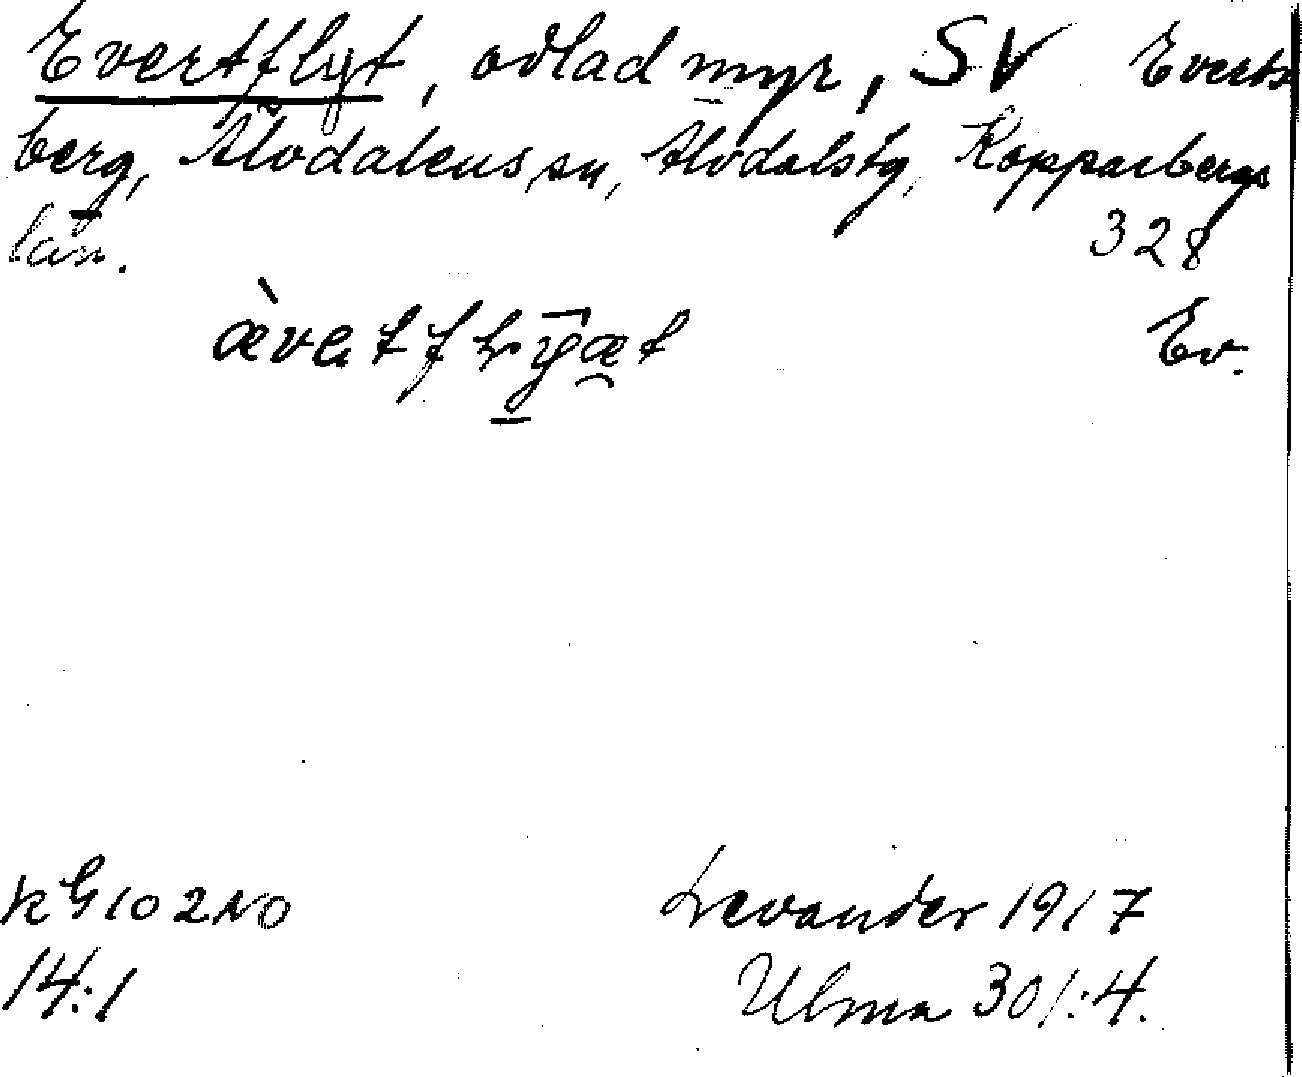 Evertflyt, odlad myr, SV Everts
berg, Älvdalens sn, Älvdalstg, Kopparbergs
län. 328
Ev.
kG 102NO Levander 1917
14:1 Ulma 301:4.